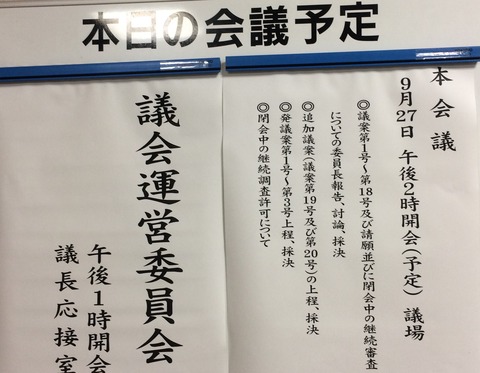 本日の会議予定
本会議
9月27日 午後2時開会(予定) 議場
◎議案第1号～第18号及び請願並びに閉会中の継続審査
についての委員長報告、討論、採決
◎追加議案(議案第19号及び第20号)の上程、採決
◎発議案第1号～第3号上程、採決
◎閉会中の継続調査許可について
議会運営委員会
午後1時開会
議長応接室